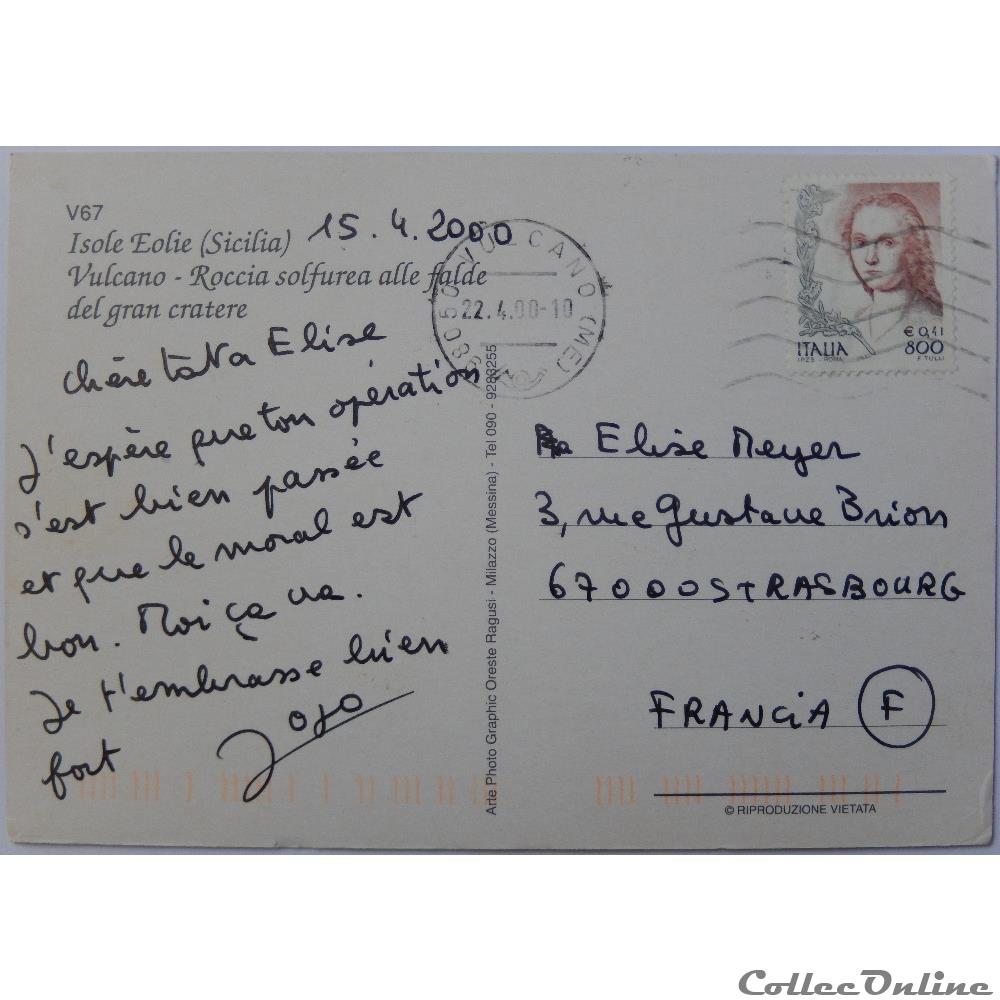 V67
Isole Eolie (Sicilia)
15.4.2000
Vulcano - Roccia solfurea alle falde
del gran cratere
Chère tata Elise
J'espère que ton opération
s'est bien passée
et que le moral est
bon. Moi ça va.
Je t'embrasse bien
fort
Jojo
98050 VULCANO (ME)
22.4.00-10
Arte Photo Graphic Oreste Ragusi - Milazzo (Messina) - Tel 090 - 9283255
€ 0,41
ITALIA 800
I.P.Z.S. - ROMA F. TULLI
Elise Meyer
3, rue Gustave Brion
67000 STRASBOURG
FRANCIA F
© RIPRODUZIONE VIETATA
CollecOnline